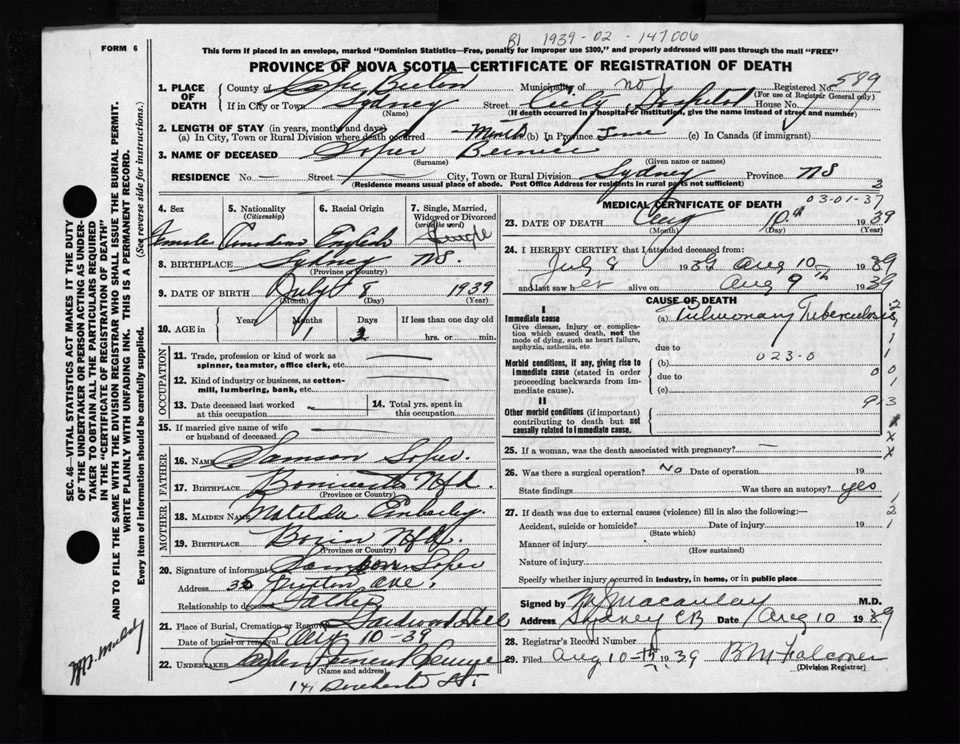 B1 1939-02-147006
FORM 6
This form if placed in an envelope, marked "Dominion Statistics—Free, penalty for improper use $300," and properly addressed will pass through the mail "FREE"
PROVINCE OF NOVA SCOTIA—CERTIFICATE OF REGISTRATION OF DEATH
SEC. 46—VITAL STATISTICS ACT MAKES IT THE DUTY
OF THE UNDERTAKER OR PERSON ACTING AS UNDER-
TAKER TO OBTAIN ALL THE PARTICULARS REQUIRED
IN THE "CERTIFICATE OF REGISTRATION OF DEATH"
AND TO FILE THE SAME WITH THE DIVISION REGISTRAR WHO SHALL ISSUE THE BURIAL PERMIT.
WRITE PLAINLY WITH UNFADING INK. THIS IS A PERMANENT RECORD.
Every item of information should be carefully supplied. (See reverse side for instructions.)
1. PLACE OF DEATH
County of Cape Breton Municipality of No 1 Registered No. 589
(For use of Registrar General only)
If in City or Town Sydney Street City Hospital House No.
(Name) (If death occurred in a hospital or institution, give the name instead of street and number)
2. LENGTH OF STAY (in years, months and days)
(a) In City, Town or Rural Division where death occurred Month (b) In Province Same (c) In Canada (if immigrant)
3. NAME OF DECEASED Soper Bernice
(Surname) (Given name or names)
RESIDENCE No — Street — City, Town or Rural Division Sydney Province NS
(Residence means usual place of abode. Post Office Address for residents in rural parts not sufficient)
2
4. Sex 5. Nationality (Citizenship) 6. Racial Origin 7. Single, Married, Widowed or Divorced (write the word)
Female Canadian English Single
8. BIRTHPLACE Sydney NS.
(Province or Country)
9. DATE OF BIRTH July 8 1939
(Month) (Day) (Year)
10. AGE in Years Months Days If less than one day old
1 2 hrs. or min.
OCCUPATION
11. Trade, profession or kind of work as
spinner, teamster, office clerk, etc.
12. Kind of industry or business, as cotton-
mill, lumbering, bank, etc.
13. Date deceased last worked
at this occupation
14. Total yrs. spent in this occupation
15. If married give name of wife
or husband of deceased
FATHER
16. Name Samson Soper.
17. Birthplace Nfd.
(Province or Country)
MOTHER
18. Maiden Name Matilda Emberley
19. Birthplace Nfd.
(Province or Country)
20. Signature of informant Samson Soper
Address 30 Ave.
Relationship to deceased Father
21. Place of Burial, Cremation or Removal
Date of burial or removal Aug 10-39
22. Undertaker
(Name and address)
141 Dorchester St
MEDICAL CERTIFICATE OF DEATH
03-01-37
23. DATE OF DEATH Aug 10th 1939
(Month) (Day) (Year)
24. I HEREBY CERTIFY that I attended deceased from
July 8 1939 Aug 10 1939
and last saw her alive on Aug 9th 1939
CAUSE OF DEATH
I
Immediate cause (a) Pulmonary Tuberculosis
Give disease, injury or complica-
tion which caused death, not the
mode of dying, such as heart failure,
asphyxia, asthenia, etc.
due to
023-0
Morbid conditions, if any, giving rise to
immediate cause (stated in order
proceeding backwards from im-
mediate cause).
(b)
due to
(c)
II
Other morbid conditions (if important)
contributing to death but not
causally related to immediate cause.
913
25. If a woman, was the death associated with pregnancy? —
26. Was there a surgical operation? No Date of operation 19
State findings Was there an autopsy? yes
27. If death was due to external causes (violence) fill in also the following:—
Accident, suicide or homicide? Date of injury 19
(State which)
Manner of injury
(How sustained)
Nature of injury
Specify whether injury occurred in Industry, in home, or in public place
Signed by M.D.
Address Sydney CB Date Aug 10 1939
28. Registrar's Record Number
29. Filed Aug 10th 1939 B M Falconer
(Division Registrar)